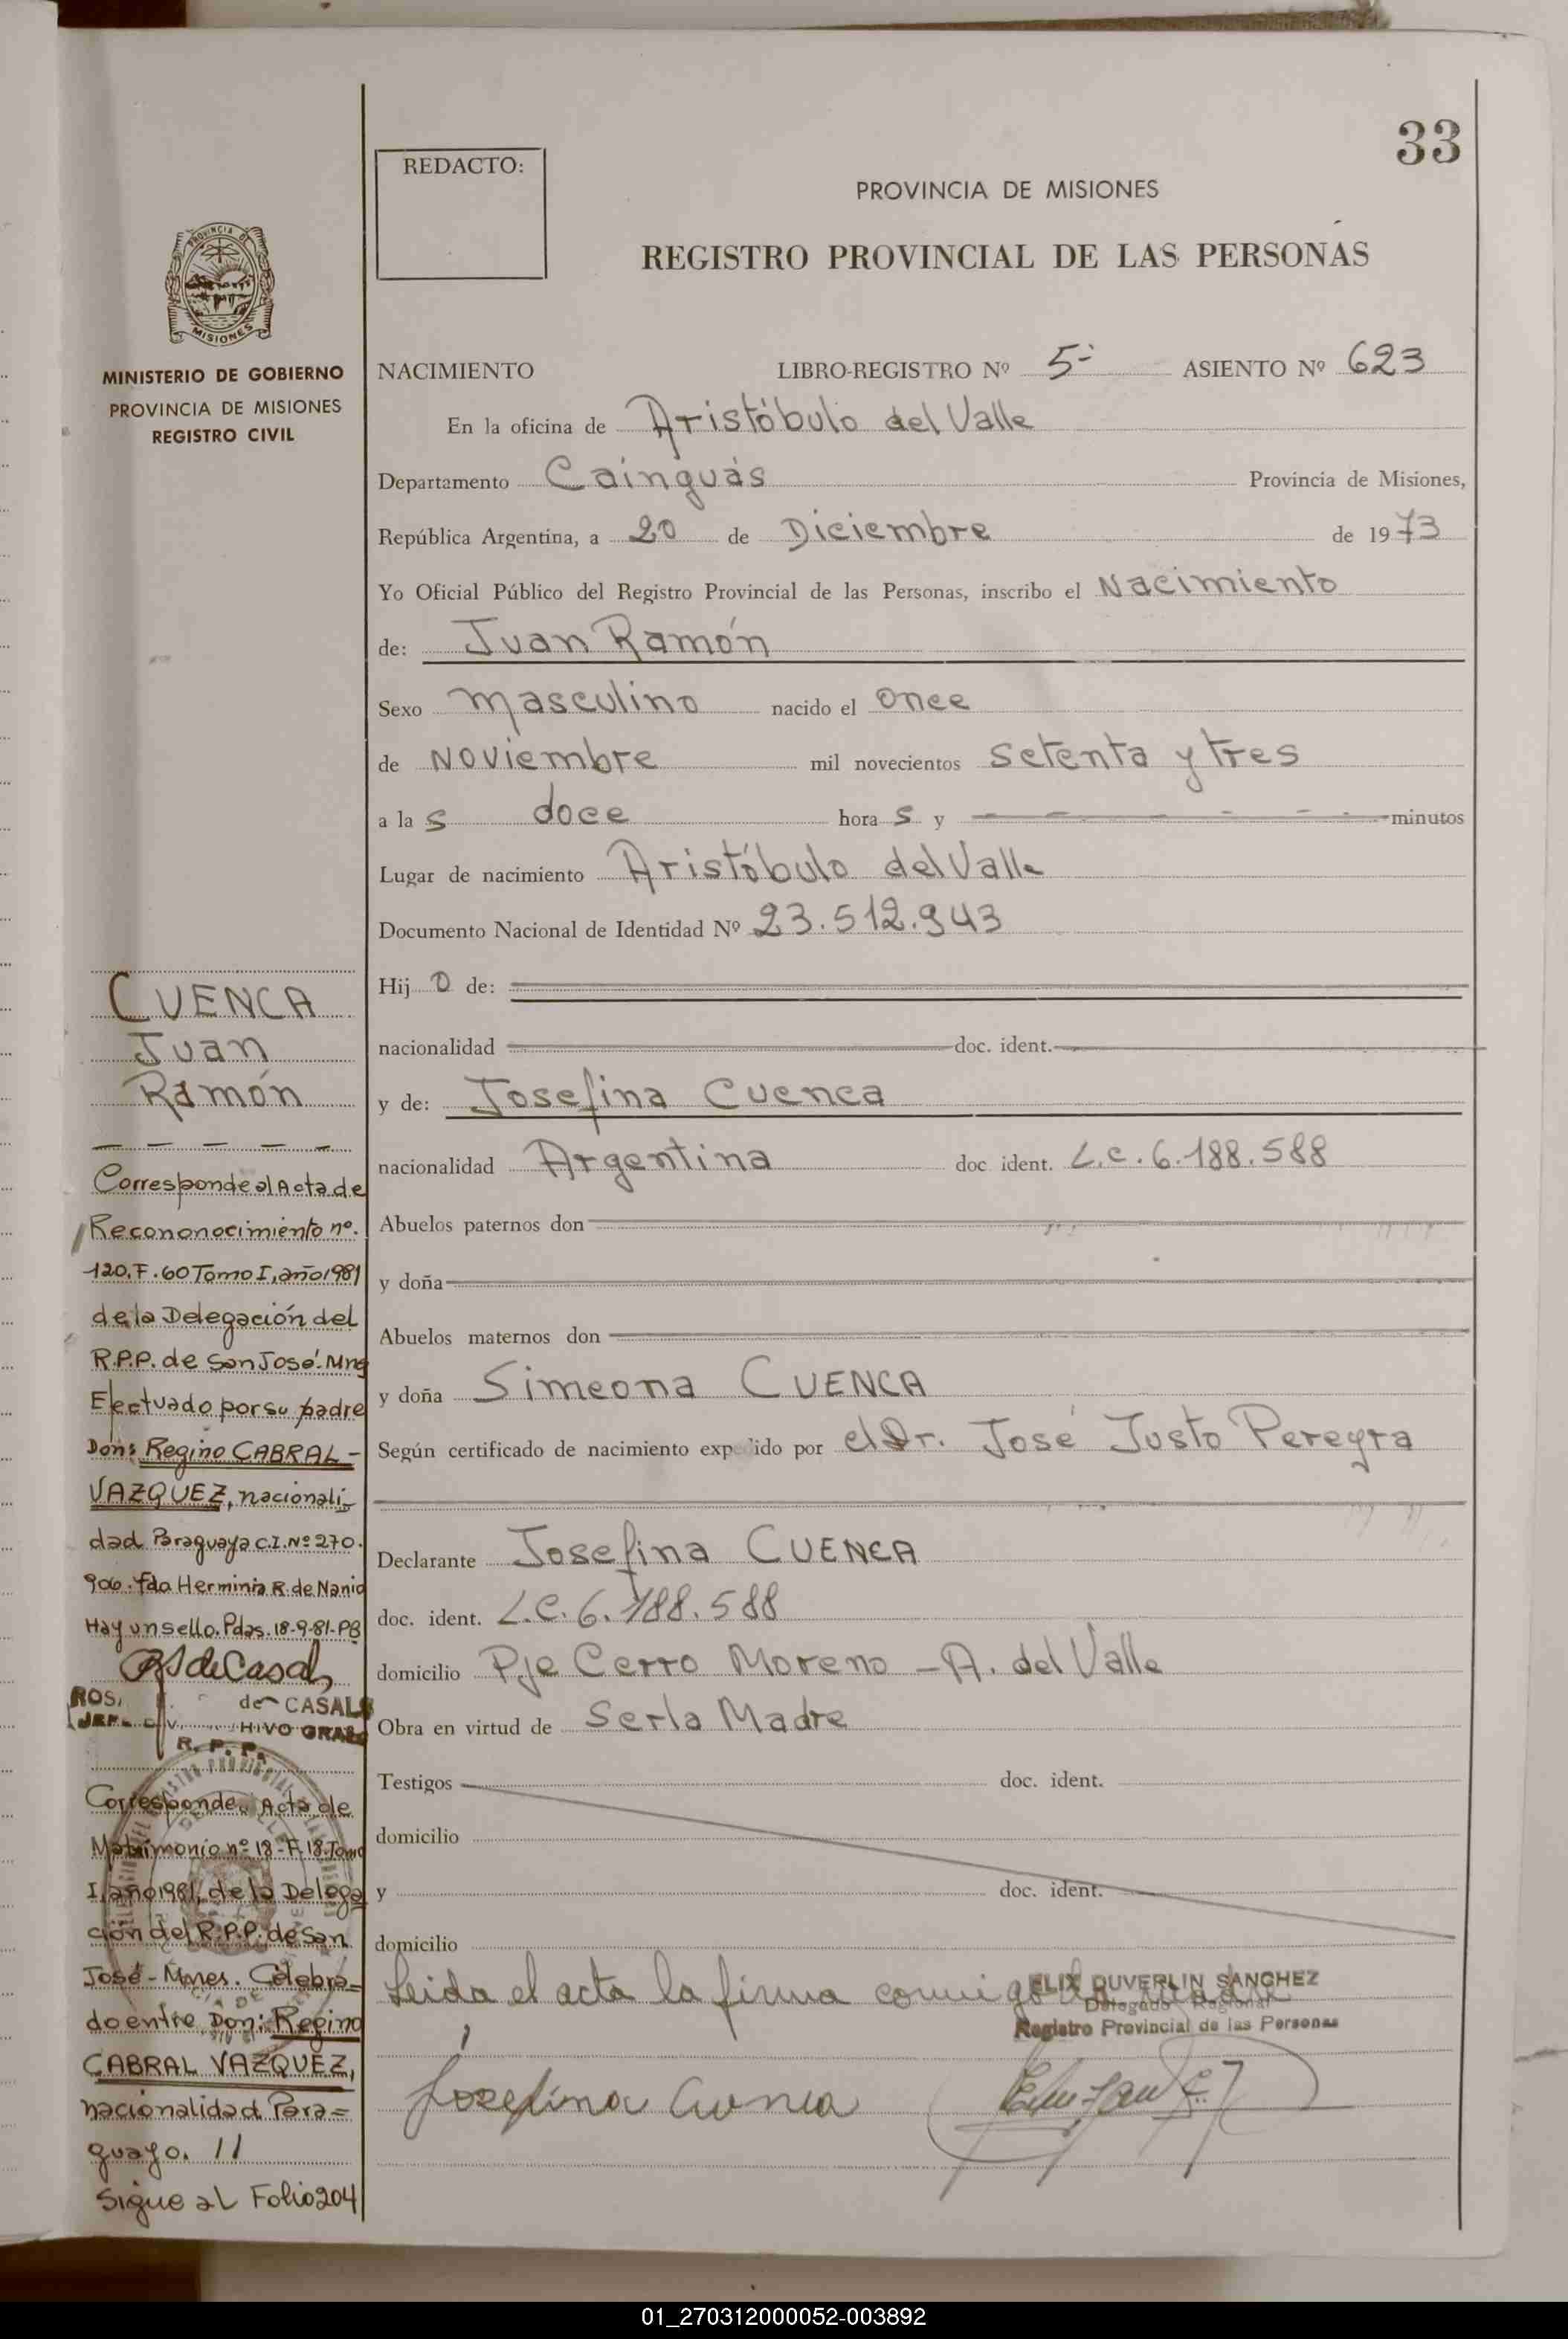 33
REDACTO:
PROVINCIA DE MISIONES
REGISTRO PROVINCIAL DE LAS PERSONAS
PROVINCIA DE
MISIONES
MINISTERIO DE GOBIERNO
PROVINCIA DE MISIONES
REGISTRO CIVIL
NACIMIENTO LIBRO-REGISTRO Nº 5- ASIENTO Nº 623
En la oficina de Aristóbulo del Valle
Departamento Cainguás Provincia de Misiones,
República Argentina, a 20 de Diciembre de 1973
Yo Oficial Público del Registro Provincial de las Personas, inscribo el Nacimiento
de: Juan Ramón
Sexo masculino nacido el once
de Noviembre mil novecientos setenta y tres
a la s doce hora s y minutos
Lugar de nacimiento Aristóbulo del Valle
Documento Nacional de Identidad Nº 23.512.943
Hij o de:
nacionalidad doc. ident.
y de: Josefina Cuenca
nacionalidad Argentina doc ident. L.C. 6.188.588
Abuelos paternos don
y doña
Abuelos maternos don
y doña Simeona CUENCA
Según certificado de nacimiento expedido por el Dr. José Justo Pereyra
Declarante Josefina CUENCA
doc. ident. L.C. 6.188.588
domicilio Pje Cerro Moreno - A. del Valle
Obra en virtud de Ser la Madre
Testigos doc. ident.
domicilio
y doc. ident.
domicilio
Leida el acta la firma conmigo la madre
FELIX DUVERLIN SANCHEZ
Delegado Regional
Registro Provincial de las Personas
Josefina Cuenca
CUENCA
Juan
Ramón
Corresponde al Acta de
Recononocimiento nº.
120, F. 60 Tomo I, año 1981
de la Delegación del
R.P.P. de San José. Mnes
Efectuado por su padre
Don: Regino CABRAL-
VAZQUEZ, nacionali-
dad Paraguaya C.I. Nº 270.
906. fdo Herminia R. de Nanio
Hay un sello. Pdas. 18-9-81-PB
de Casals
ROS. de CASALS
HIVO GRAL
R. P. P.
Corresponde. Acta de
Matrimonio nº 18-F. 18. Tomo
I, año 1981, de la Delega
ción del R.P.P. de San
José - Mnes. Celebra=
do entre Don: Regino
CABRAL VAZQUEZ,
nacionalidad Para=
guayo. //
Sigue al Folio 204
01_270312000052-003892